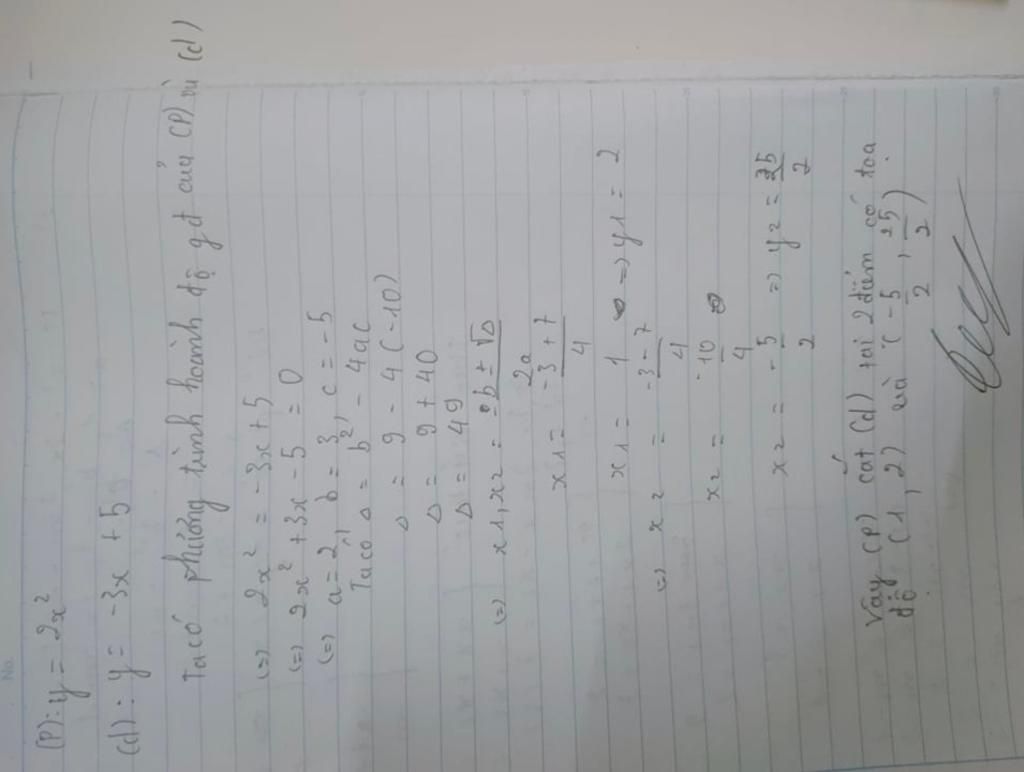 No.
(P): y = 2x²
(d): y = -3x + 5
Ta có phương trình hoành độ gđ của (P) và (d)
(=) 2x² = -3x + 5
(=) 2x² + 3x - 5 = 0
(=) a = 2, b = 3, c = -5
Ta có Δ = b² - 4ac
Δ = 9 - 4(-10)
Δ = 9 + 40
Δ = 49
(=) x1, x2 = -b ± √Δ / 2a
x1 = -3 + 7 / 4
x1 = 1 => y1 = 2
(=) x2 = -3 - 7 / 4
x2 = -10 / 4
x2 = -5 / 2 => y2 = 25 / 2
Vậy (P) cắt (d) tại 2 điểm có tọa
độ (1, 2) và (-5/2, 25/2)